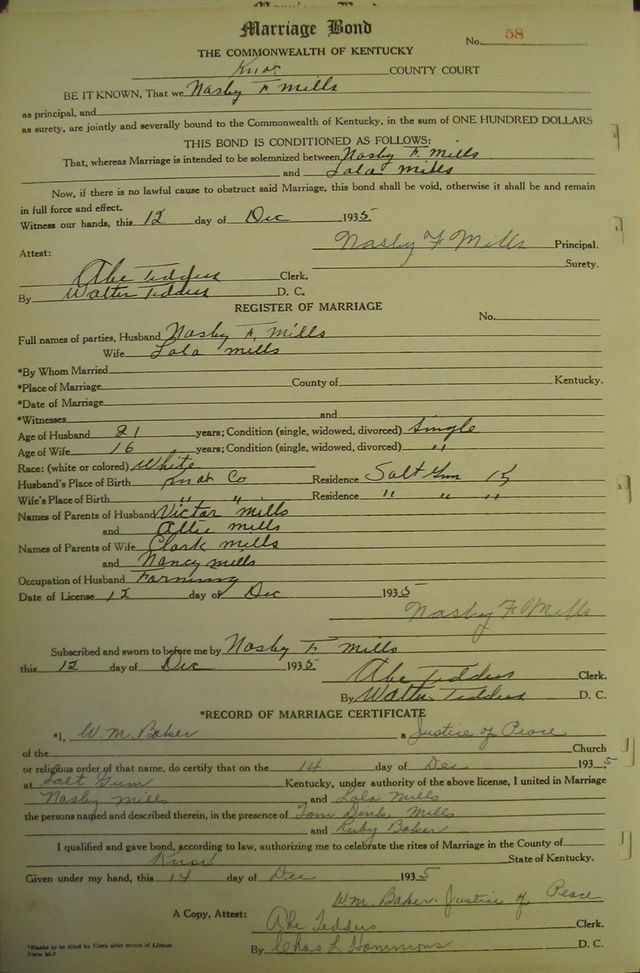 Marriage Bond
No. 58
THE COMMONWEALTH OF KENTUCKY
Knox COUNTY COURT
BE IT KNOWN, That we Nasby F Mills
as principal, and
as surety, are jointly and severally bound to the Commonwealth of Kentucky, in the sum of ONE HUNDRED DOLLARS
THIS BOND IS CONDITIONED AS FOLLOWS:
That, whereas Marriage is intended to be solemnized between Nasby F. Mills
and Lola Mills
Now, if there is no lawful cause to obstruct said Marriage, this bond shall be void, otherwise it shall be and remain
in full force and effect.
Witness our hands, this 12 day of Dec 1935
Nasby F Mills Principal.
Attest: Surety.
Abe Tedders Clerk.
By Walter Tedders D. C.
REGISTER OF MARRIAGE
No.
Full names of parties, Husband Nasby F. Mills
Wife Lola Mills
*By Whom Married
*Place of Marriage County of Kentucky.
*Date of Marriage
*Witnesses and
Age of Husband 21 years; Condition (single, widowed, divorced) Single
Age of Wife 16 years; Condition (single, widowed, divorced) "
Race: (white or colored) White
Husband's Place of Birth Knox Co Residence Salt Gum Ky
Wife's Place of Birth " " Residence " " "
Names of Parents of Husband Victor Mills
and Allie Mills
Names of Parents of Wife Clark Mills
and Nancy Mills
Occupation of Husband Farming
Date of License 12 day of Dec 1935
Nasby F Mills
Subscribed and sworn to before me by Nasby F Mills
this 12 day of Dec 1935
Abe Tedders Clerk.
By Walter Tedders D. C.
*RECORD OF MARRIAGE CERTIFICATE
*I, W. M. Baker a Justice of Peace
of the Church
or religious order of that name, do certify that on the 14 day of Dec 1935
at Salt Gum Kentucky, under authority of the above license, I united in Marriage
Nasby Mills and Lola Mills
the persons named and described therein, in the presence of Tom Mills
and Ruby Baker
I qualified and gave bond, according to law, authorizing me to celebrate the rites of Marriage in the County of
Knox State of Kentucky.
Given under my hand, this 14 day of Dec 1935
W. M. Baker Justice of Peace
A Copy, Attest: Abe Tedders Clerk.
By Chas L Hammons D. C.
*Blanks to be filled by Clerk after return of License